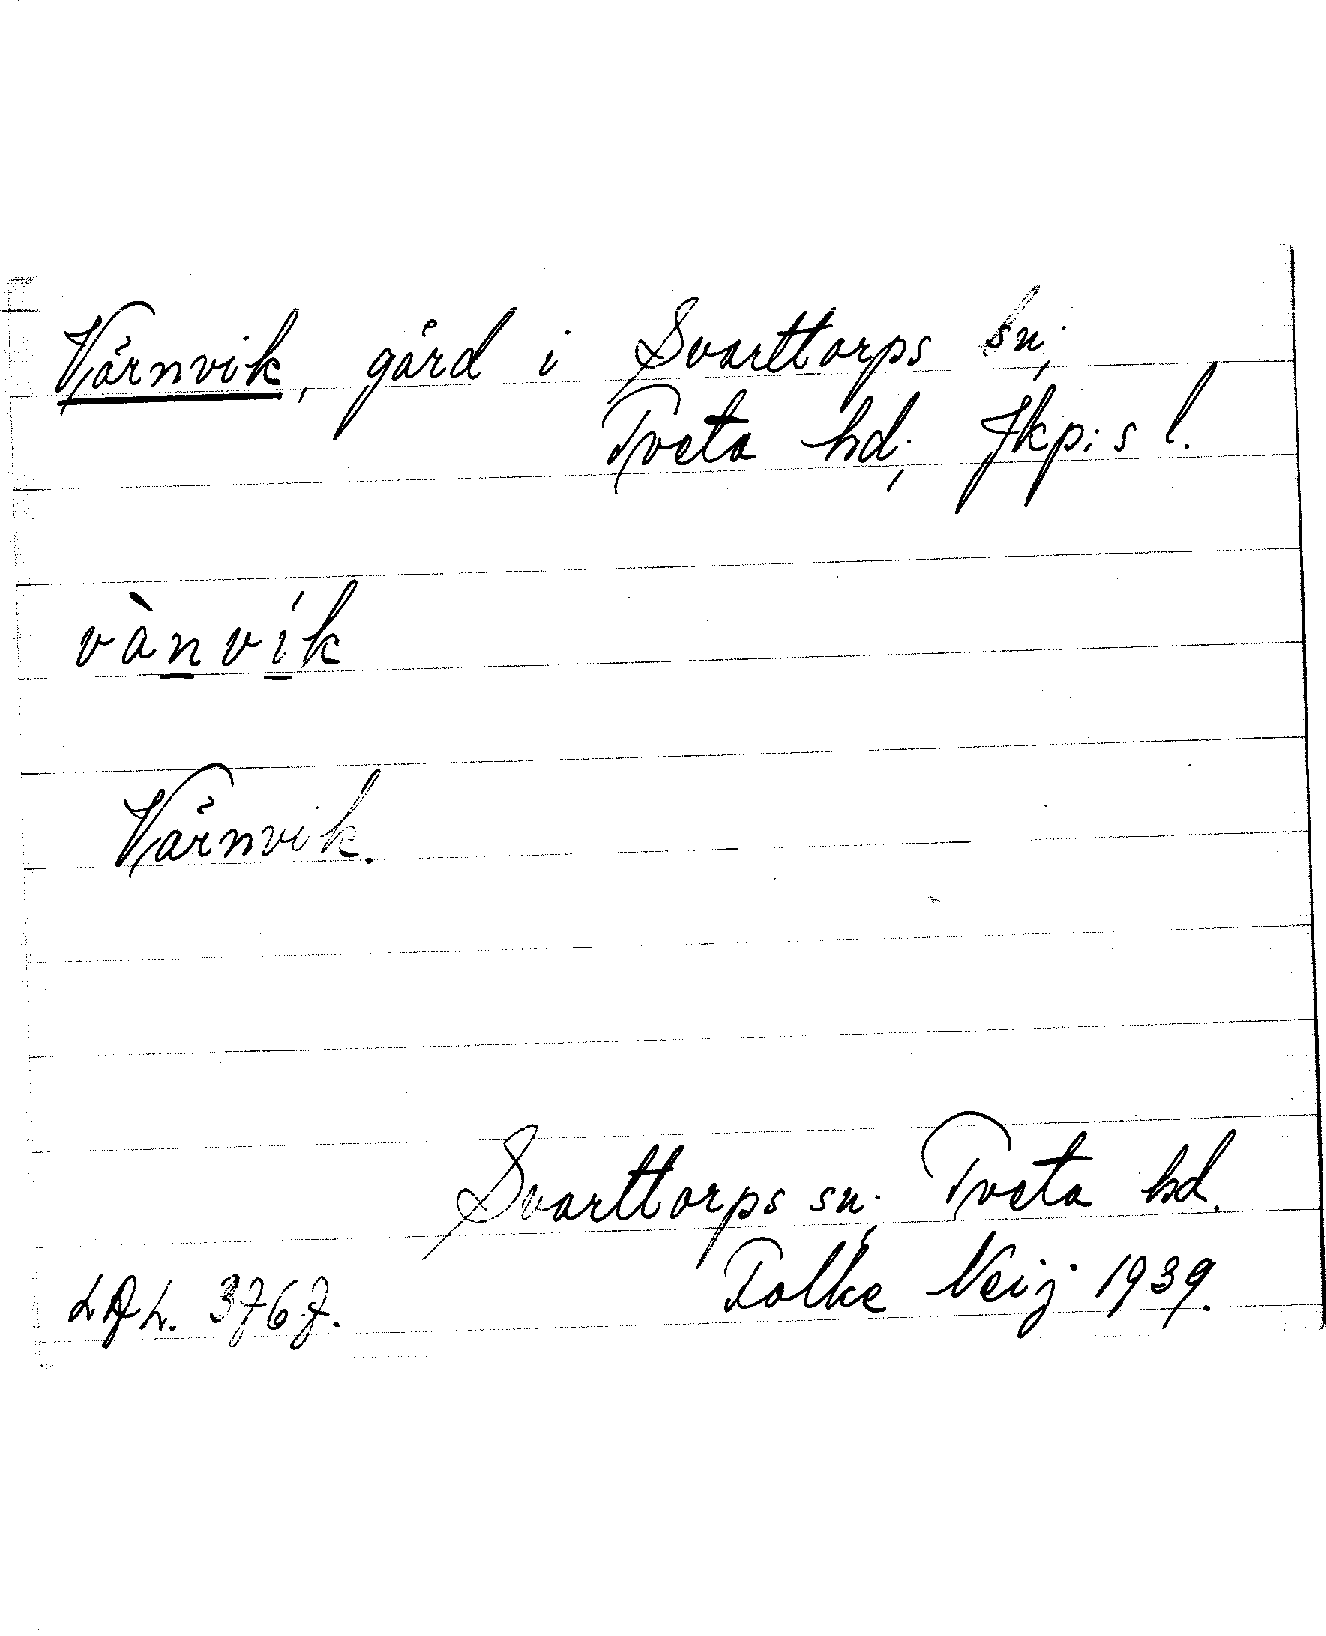 Vårnvik, gård i Svarttorps sn;
Tveta hd; Jkp:s l.
vànvík
Vårnvik.
Svarttorps sn; Tveta hd.
Folke Neij 1939.
LAL. 3767.